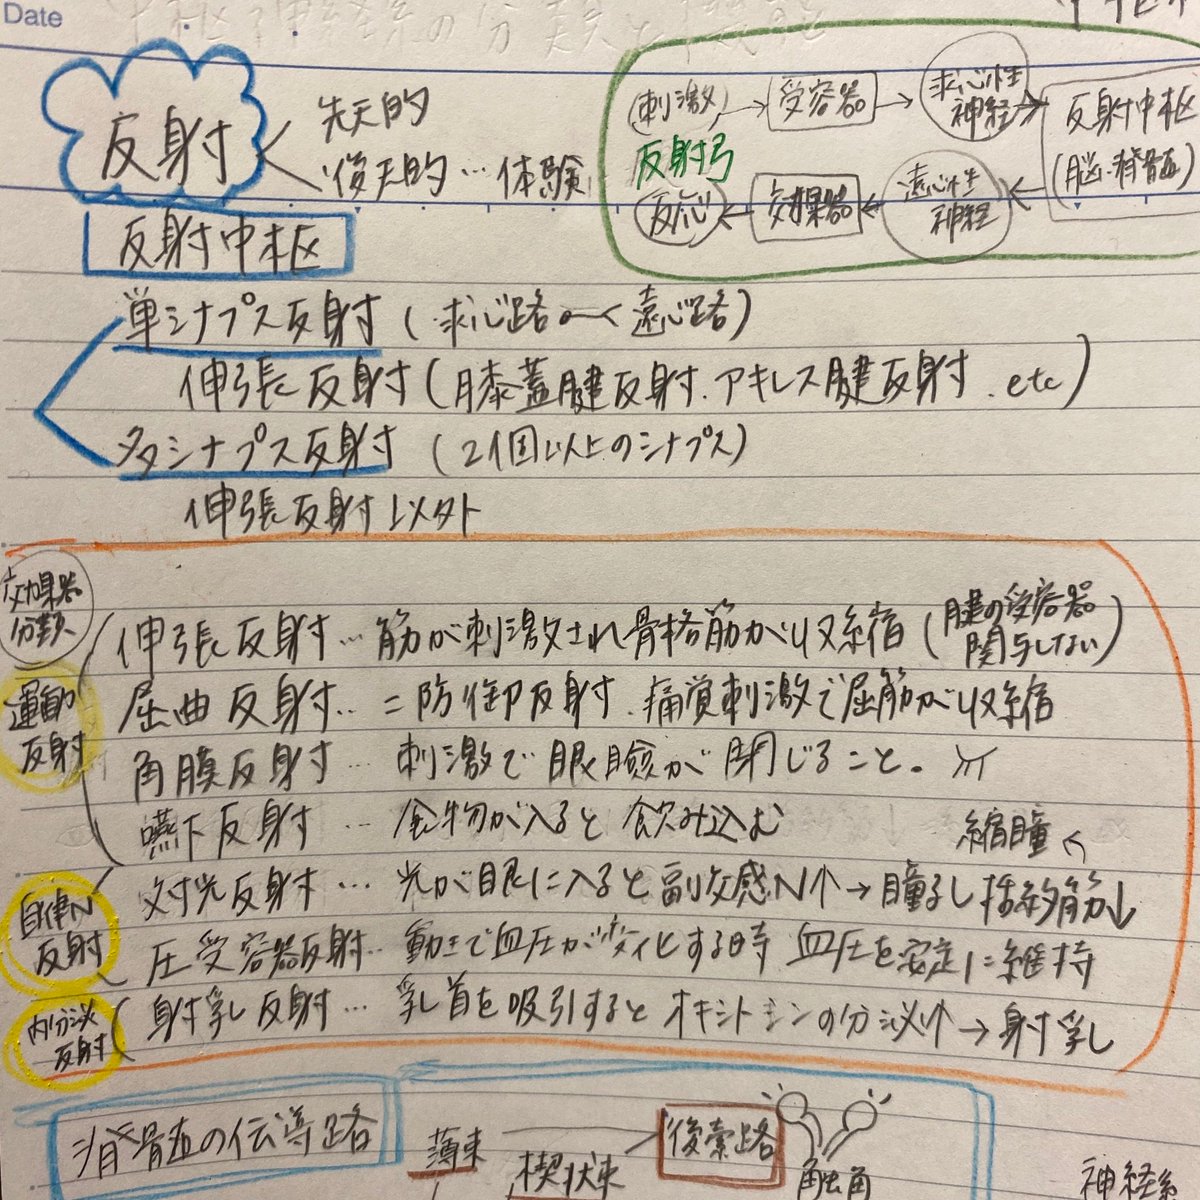 Date
反射 先天的
後天的…体験
刺激 → 受容器 → 求心性神経 → 反射中枢(脳・脊髄)
反射弓
反応 ← 効果器 ← 遠心性神経
反射中枢
単シナプス反射(求心路 遠心路)
伸張反射(膝蓋腱反射.アキレス腱反射.etc)
多シナプス反射(2個以上のシナプス)
伸張反射以外
効果器分類
伸張反射…筋が刺激され骨格筋が収縮(腱の受容器関与しない)
運動反射
屈曲反射…=防御反射.痛覚刺激で屈筋が収縮
角膜反射…刺激で眼瞼が閉じること。
嚥下反射…食物が入ると飲み込む
縮瞳
自律N反射
対光反射…光が眼に入ると副交感N↑→瞳孔括約筋↓
圧受容器反射…動きで血圧が変化する時 血圧を安定に維持
内分泌反射
射乳反射…乳首を吸引するとオキシトシンの分泌↑→射乳
脊髄の伝導路
薄束
楔状束
後索路
触角
神経系